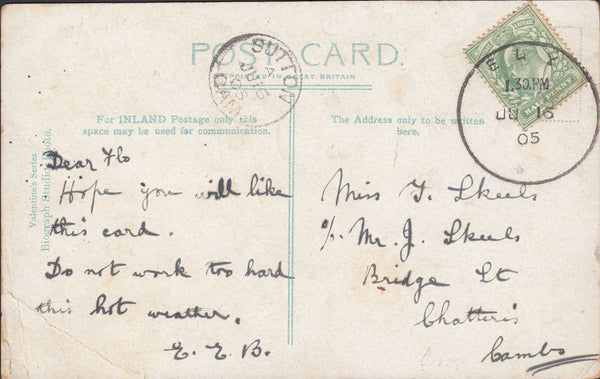 POST CARD.
PRINTED IN GREAT BRITAIN
SUTTON
A
JU 15
05
ELY
1.30.PM
JU 15
05
For INLAND Postage only this
space may be used for communication.
The Address only to be written
here.
Valentine's Series
Biograph Studio Photo.
Dear Flo
Hope you will like
this card.
Do not work too hard
this hot weather.
E. E. B.
Miss F. Skeels
c/o Mr. J. Skeels
Bridge St
Chatteris
Cambs